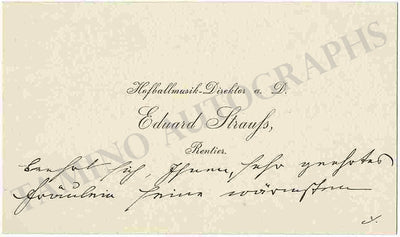 Hofballmusik-Direktor a. D.
Eduard Strauß,
Rentier.
beehrt sich, Ihnen, sehr geehrtes
Fräulein seine wärmsten
TAMINO AUTOGRAPHS